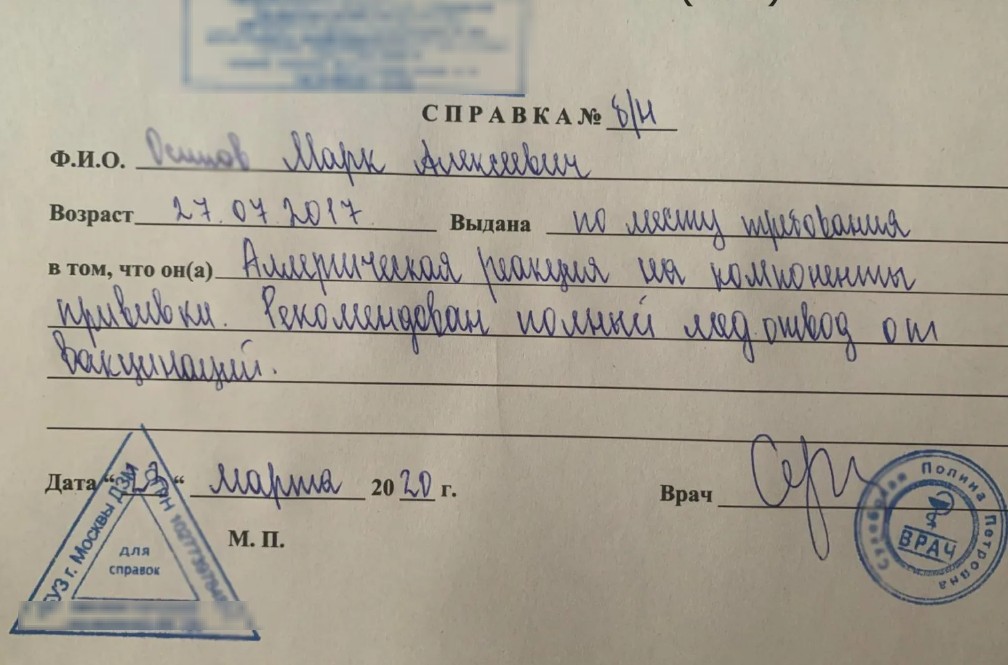 СПРАВКА № б/н
Ф.И.О. Марк Алексеевич
Возраст 27.07.2017 Выдана по месту требования
в том, что он(а) Аллергическая реакция на компоненты
прививки. Рекомендован полный мед.отвод от
вакцинаций.
Дата “23“ марта 2020 г. Врач
М. П.
ГУЗ г. Москвы ДЗМ
ОГРН
для
справок
Полина Петровна
ВРАЧ